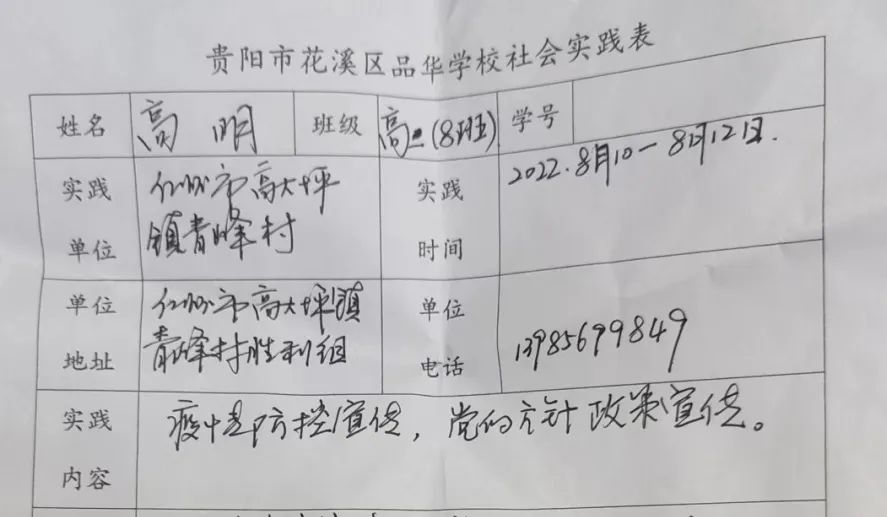 贵阳市花溪区品华学校社会实践表
姓名 高明 班级 高二(8班) 学号
实践单位 仁怀市高大坪镇青峰村 实践时间 2022.8月10一8月12日.
单位地址 仁怀市高大坪镇青峰村胜利组 单位电话 13985699849
实践内容 疫情防控宣传,党的方针政策宣传。